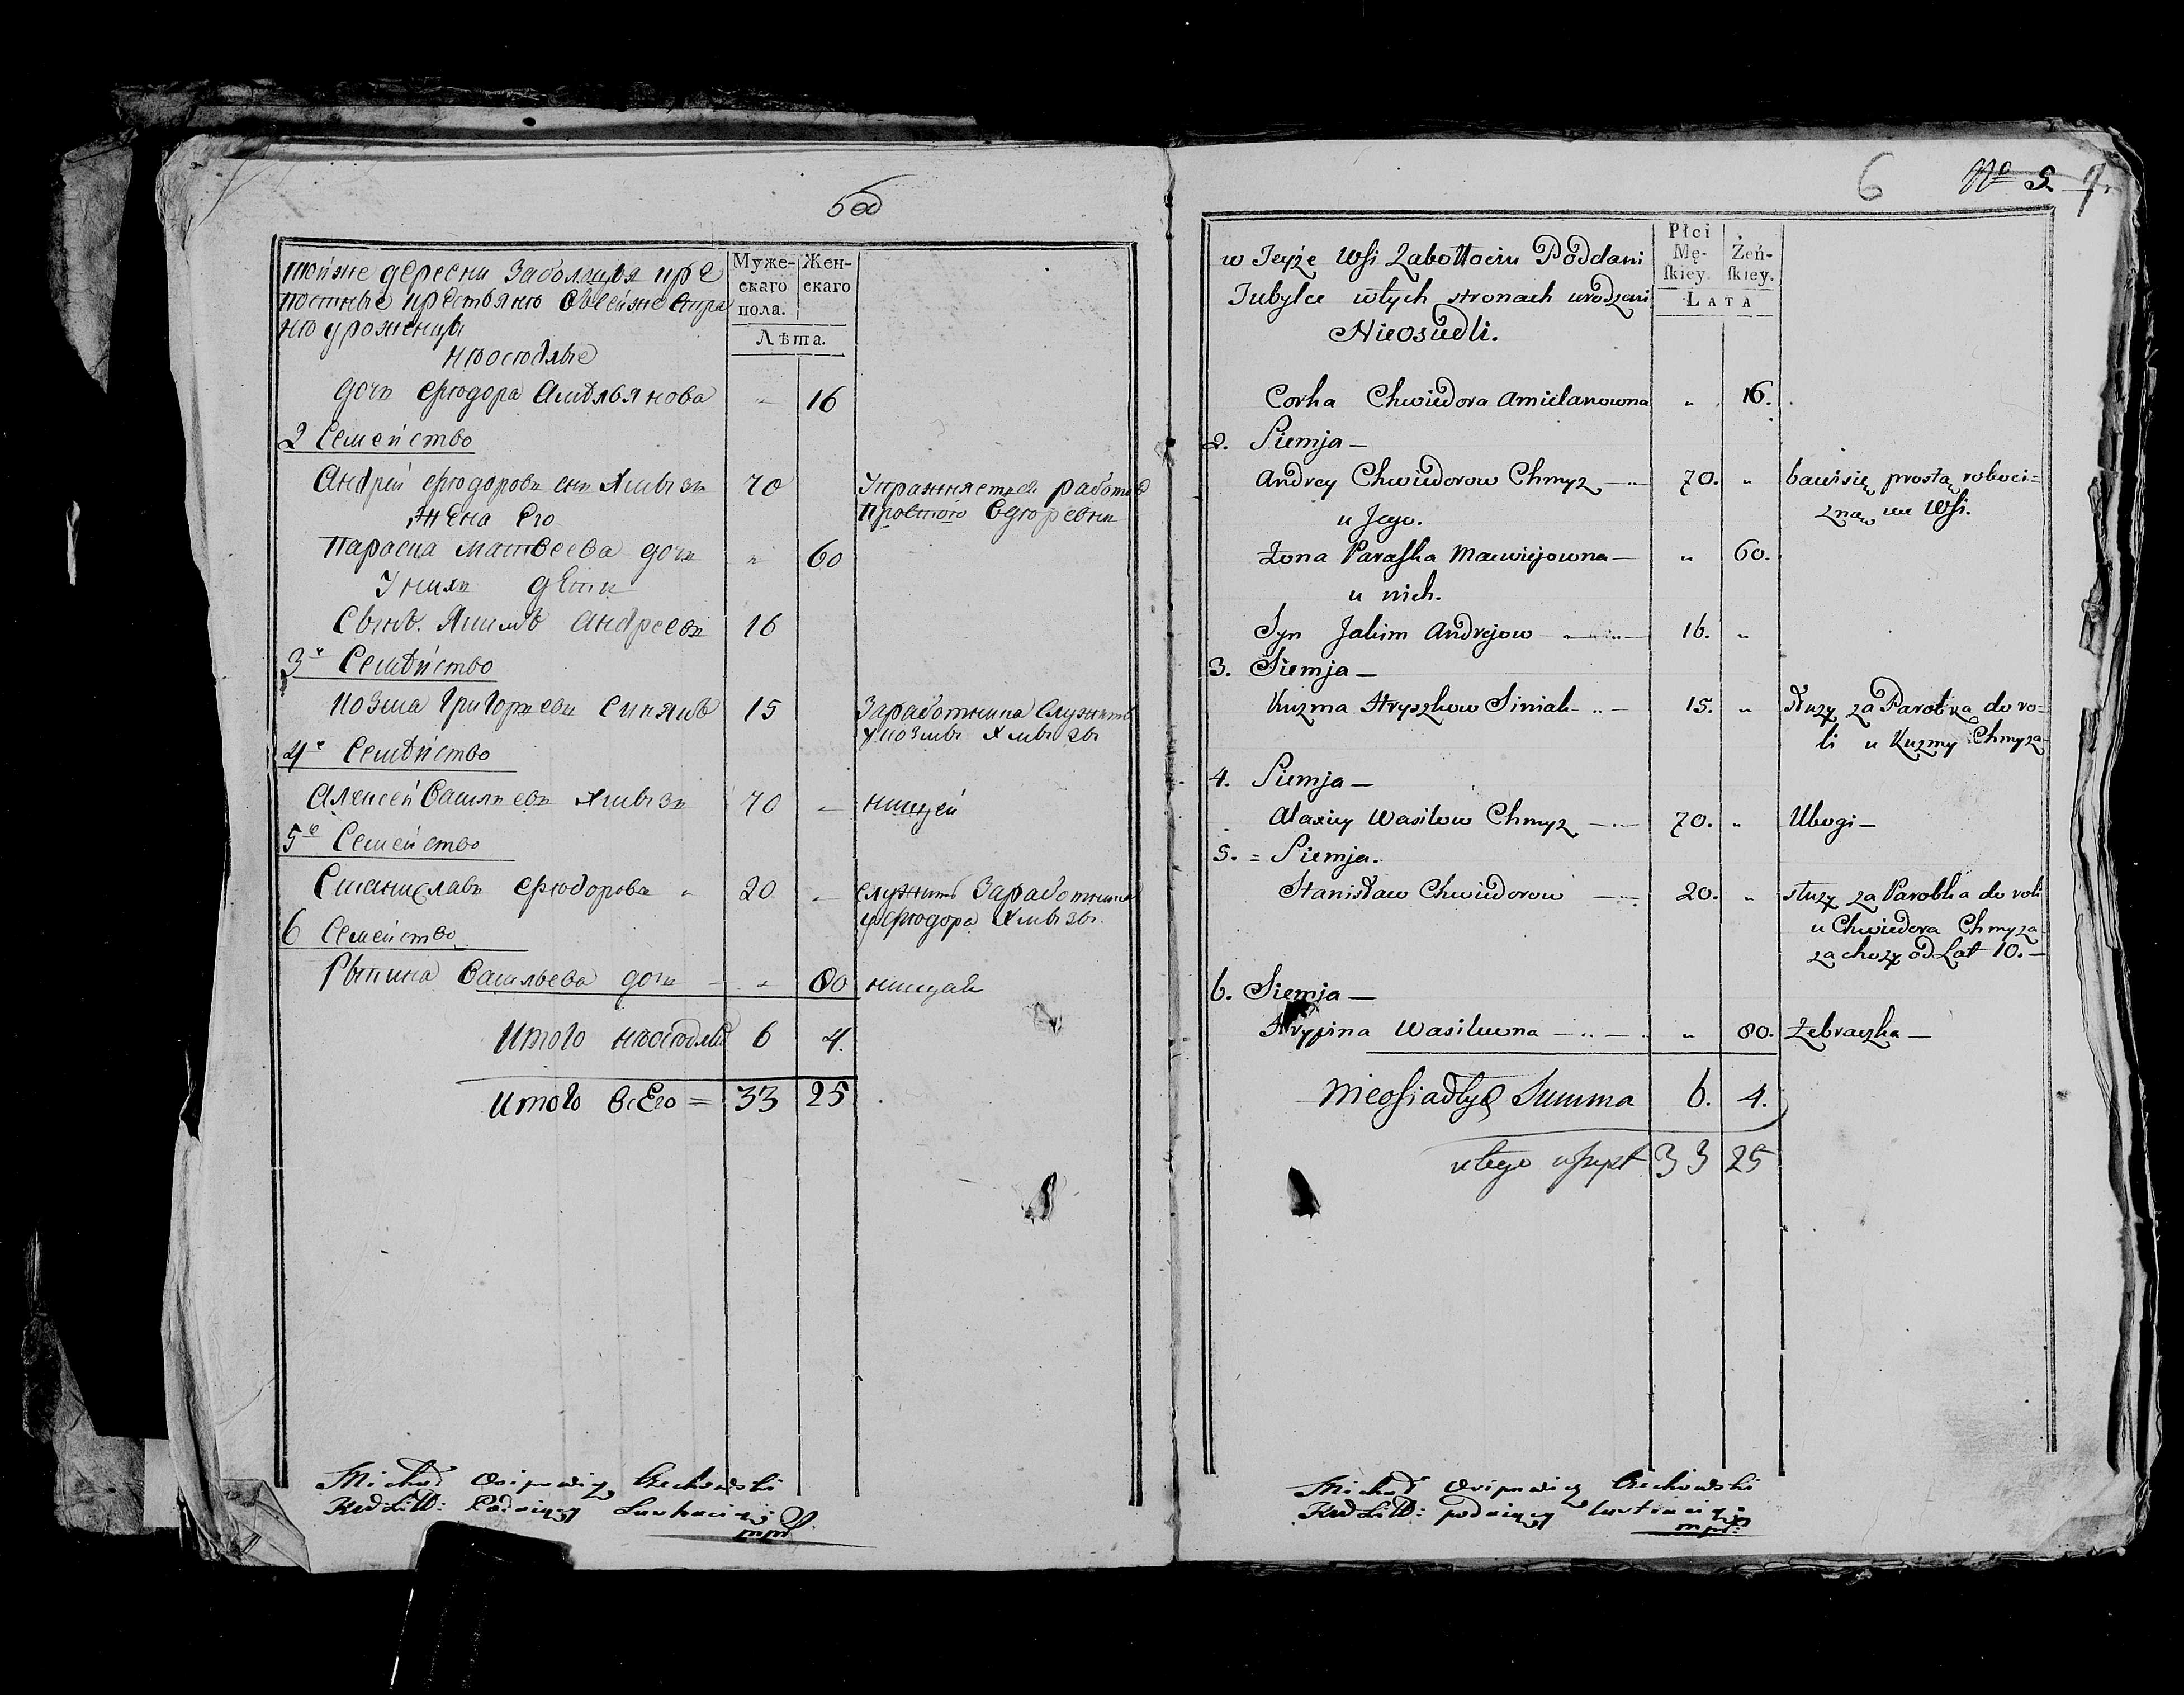 5 об
тойже деревни Заболотья кре
постные крестьяню Овсейже стра
ню уроженцы
Нюосюдлые
Муже-
скаго
пола.
Жен-
скаго
Лѣта.
дочь Фюдора Амѣльянова " 16
2 Семейство
Андрей Фюдоровъ снъ Хмызъ 70 Упражняется работою
Жена Его простою вдюревни
Параска Матвеева дочь " 60
Унихъ дети
Сынъ Якимъ Андреевъ 16
3е Семѣйство
Козма Григорьевъ Синякъ 15 Заработника Служитъ
укозмы Хмызы
4е Семѣйство
Алексей Василевъ Хмызъ 70 — нищей
5е Семейство
Станиславъ Фюдорова " 20 — служитъ Заработника
уфюдора Хмызы
6 Семейство
Рыпина Васильева дочь — " 80 нищая
Итого нюосюдлы 6 4.
Итого всЕго = 33 25
Michał Osipowicz Czechowski
6 No 5
w Teyże Wsi Zabołłociu Poddani
Tubylce wtych stronach urodzeni
Nieosiedli.
Płci
Mę-
skiey.
Żeń-
skiey.
LATA
Corka Chwiedora Amielanowna " 16.
2. Siemja —
Andrey Chwiedorow Chmyz — 70. " bawisię prostą roboci=
u Jego. zną we Wsi.
Żona Paraska Maciejowna — " 60.
u nich.
Syn Jakim Andrejow — 16. "
3. Siemja —
Kuzma Hryszkow Siniak — 15. " służy za Parobka do ro=
li u Kuzmy Chmyza
4. Siemja —
Alaxiey Wasilew Chmyz — 70. " Ubogi —
5. = Siemja.
Stanisław Chwiedorow — 20. " służy za Parobka do roli
u Chwiedora Chmyza
zachozy od Lat 10. —
6. Siemja —
Hrypina Wasilewna — " 80. Żebraczka —
Nieosiadłych Summa 6. 4.
33 25
Michał Osipowicz Czechowski